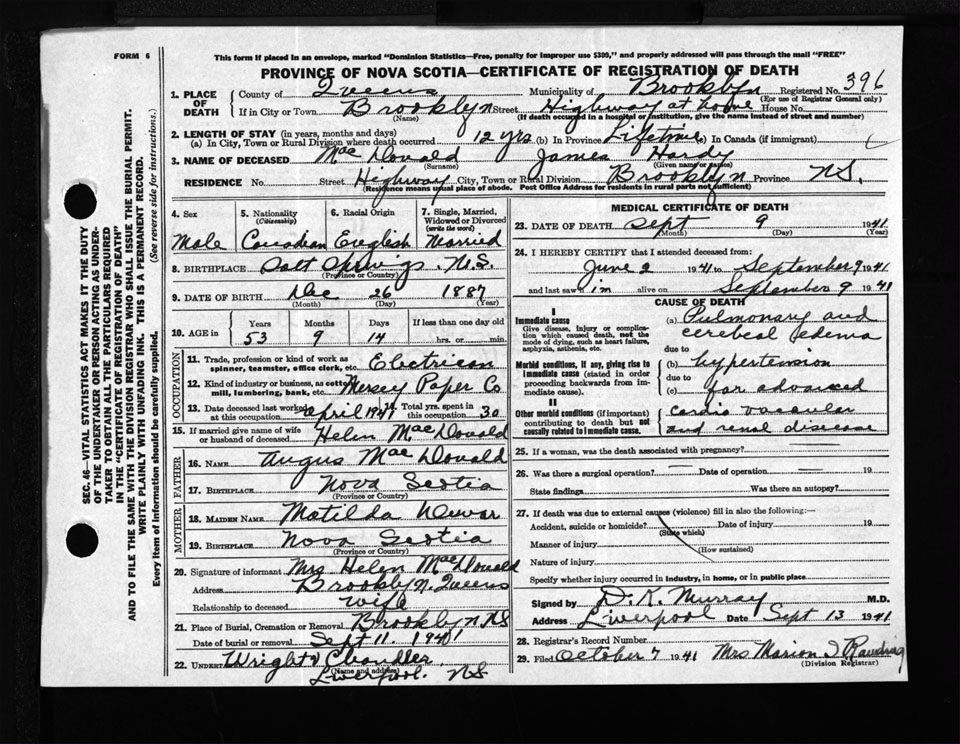 FORM 6
This form if placed in an envelope, marked "Dominion Statistics—Free, penalty for improper use $300," and properly addressed will pass through the mail "FREE"
PROVINCE OF NOVA SCOTIA—CERTIFICATE OF REGISTRATION OF DEATH
SEC. 46—VITAL STATISTICS ACT MAKES IT THE DUTY
OF THE UNDERTAKER OR PERSON ACTING AS UNDER-
TAKER TO OBTAIN ALL THE PARTICULARS REQUIRED
IN THE "CERTIFICATE OF REGISTRATION OF DEATH"
AND TO FILE THE SAME WITH THE DIVISION REGISTRAR WHO SHALL ISSUE THE BURIAL PERMIT.
WRITE PLAINLY WITH UNFADING INK. THIS IS A PERMANENT RECORD.
Every item of information should be carefully supplied. (See reverse side for instructions.)
1. PLACE OF DEATH
County of Queens Municipality of Brooklyn Registered No. 396
(For use of Registrar General only)
If in City or Town Brooklyn Street Highway at home House No.
(Name) (If death occurred in a hospital or institution, give the name instead of street and number)
2. LENGTH OF STAY (in years, months and days)
(a) In City, Town or Rural Division where death occurred 12 yrs (b) In Province Lifetime (c) In Canada (if immigrant)
3. NAME OF DECEASED MacDonald James Hardy
(Surname) (Given name or names)
RESIDENCE No. Street Highway City, Town or Rural Division Brooklyn Province N.S.
(Residence means usual place of abode. Post Office Address for residents in rural parts not sufficient)
4. Sex 5. Nationality (Citizenship) 6. Racial Origin 7. Single, Married, Widowed or Divorced (write the word)
Male Canadian English Married
8. BIRTHPLACE Salt Springs N.S.
(Province or Country)
9. DATE OF BIRTH Dec 26 1887
(Month) (Day) (Year)
10. AGE in Years Months Days If less than one day old
53 9 14 hrs. or min.
OCCUPATION
11. Trade, profession or kind of work as spinner, teamster, office clerk, etc. Electrican
12. Kind of industry or business, as cotton mill, lumbering, bank, etc. Mersey Paper Co
13. Date deceased last worked at this occupation April Total yrs. spent in this occupation 30
15. If married give name of wife or husband of deceased Helen MacDonald
FATHER
16. Name Angus MacDonald
17. BIRTHPLACE Nova Scotia
(Province or Country)
MOTHER
18. MAIDEN NAME Matilda
19. BIRTHPLACE Nova Scotia
(Province or Country)
20. Signature of informant Mrs Helen MacDonald
Address Brooklyn Queens
Relationship to deceased wife
21. Place of Burial, Cremation or Removal Brooklyn N.S
Date of burial or removal Sept 11. 1941
22. UNDERTAKER Wright & Chandler
(Name and address)
Liverpool. N.S
MEDICAL CERTIFICATE OF DEATH
23. DATE OF DEATH Sept 9 1941
(Month) (Day) (Year)
24. I HEREBY CERTIFY that I attended deceased from:
June 2 1941 to September 9 1941
and last saw him alive on September 9 1941
CAUSE OF DEATH
I
Immediate cause
Give disease, injury or complication which caused death, not the mode of dying, such as heart failure, asphyxia, asthenia, etc.
(a) Pulmonary and
cerebeal edema
due to
Morbid conditions, if any, giving rise to immediate cause (stated in order proceeding backwards from immediate cause).
(b) hypertension
due to
(c) far advanced
II
Other morbid conditions (if important) contributing to death but not causally related to immediate cause.
cardio vascular
and renal disease
25. If a woman, was the death associated with pregnancy?
26. Was there a surgical operation? — Date of operation — 19
State findings Was there an autopsy?
27. If death was due to external causes (violence) fill in also the following:—
Accident, suicide or homicide? Date of injury 19
(State which)
Manner of injury
(How sustained)
Nature of injury
Specify whether injury occurred in industry, in home, or in public place
Signed by D. K. Murray M.D.
Address Liverpool Date Sept 13 1941
28. Registrar's Record Number
29. Filed October 7 1941 Mrs Marion I
(Division Registrar)